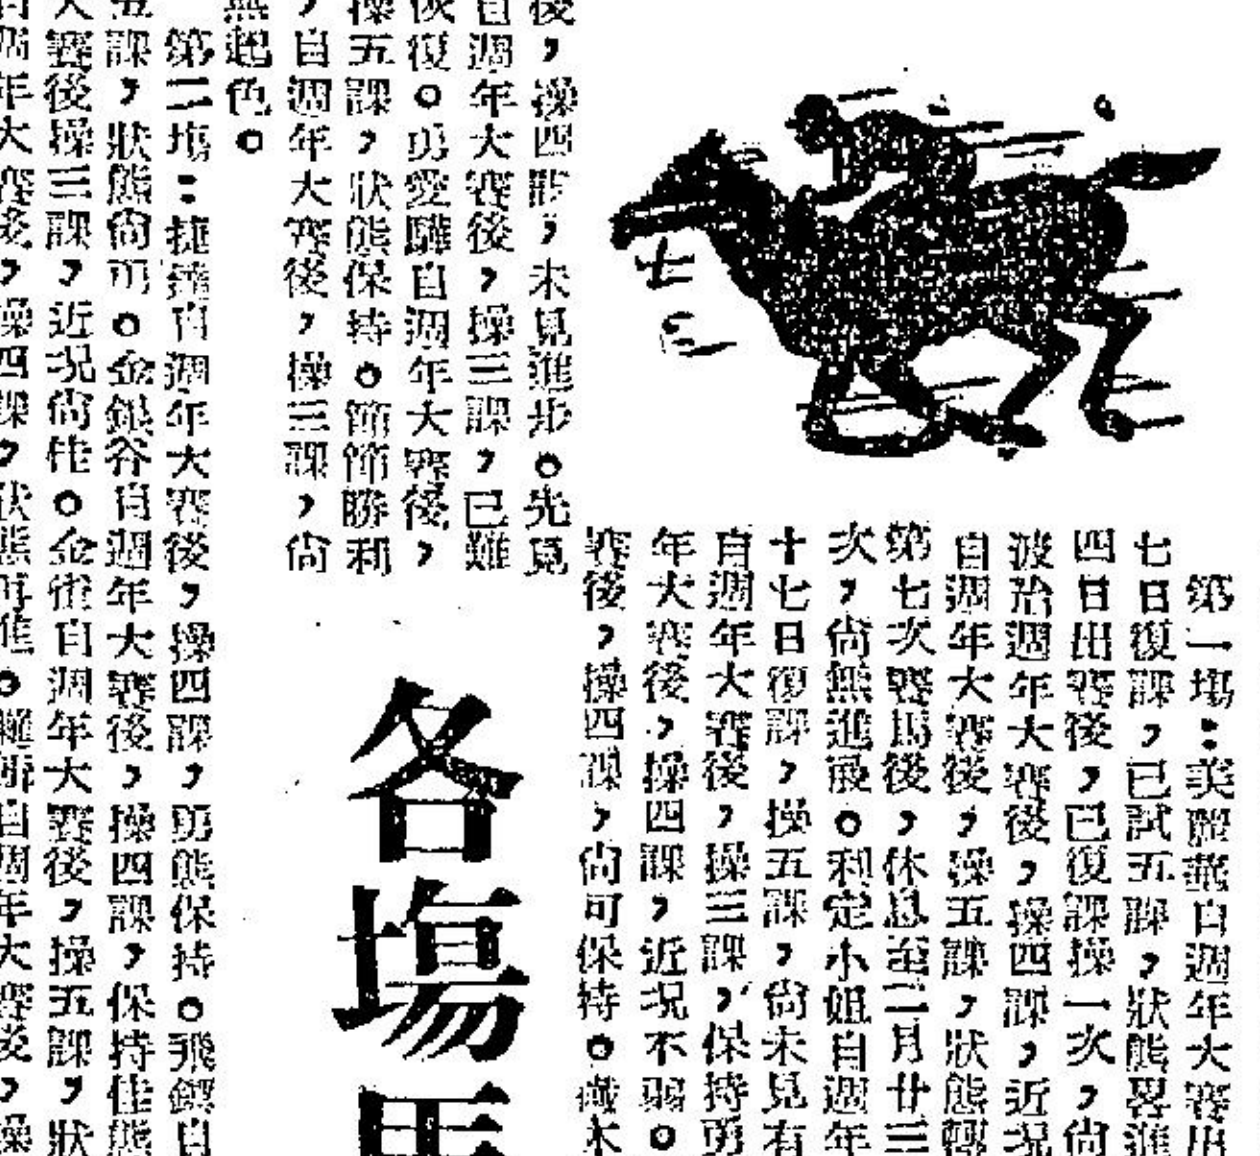 第一塲：美麗華自週年大賽出
七日復課，已試五課，狀態畧進
四日出賽後，已復課操一次，尙
波治週年大賽後，操四課，近况
自週年大賽後，操五課，狀態轉
第七次賽馬後，休息至二月廿三
次，尙無進展。利定小姐自週年
十七日復課，操五課，尙未見有
自週年大賽後，操三課，保持勇
年大賽後，操四課，近况不弱。
賽後，操四課，尙可保持。木
七三
後，操四課，未見進步。先覓
自週年大賽後，操三課，已難
恢復。勇愛驊自週年大賽後，
操五課，狀態保持。節節勝利
，自週年大賽後，操三課，尙
無起色。
各塲馬
第二塲：捷自週年大賽後，操四課，勇態保持。飛自
五課，狀態尙可。金銀谷自週年大賽後，操四課，保持佳態
大賽後操三課，近况尙佳。金自週年大賽後，操五課，狀
自週年大賽後，操四課，狀態再進。自週年大賽後，操